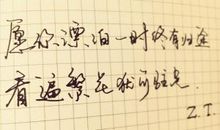 愿你漂泊一时终有归途
看遍繁花犹可驻足
Z.T